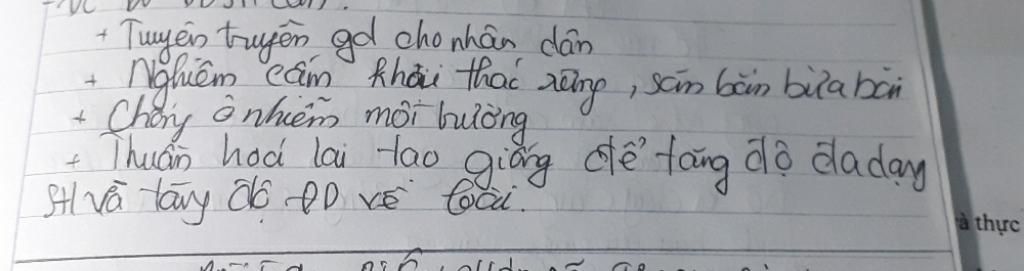 + Tuyên truyền gd cho nhân dân
+ Nghiêm cấm khai thác rừng, săn bắn bừa bãi
+ Chống ô nhiễm môi trường
+ Thuần hoá lai tạo giống để tăng độ đa dạng
SH và tăng độ ĐD về loài.
à thực